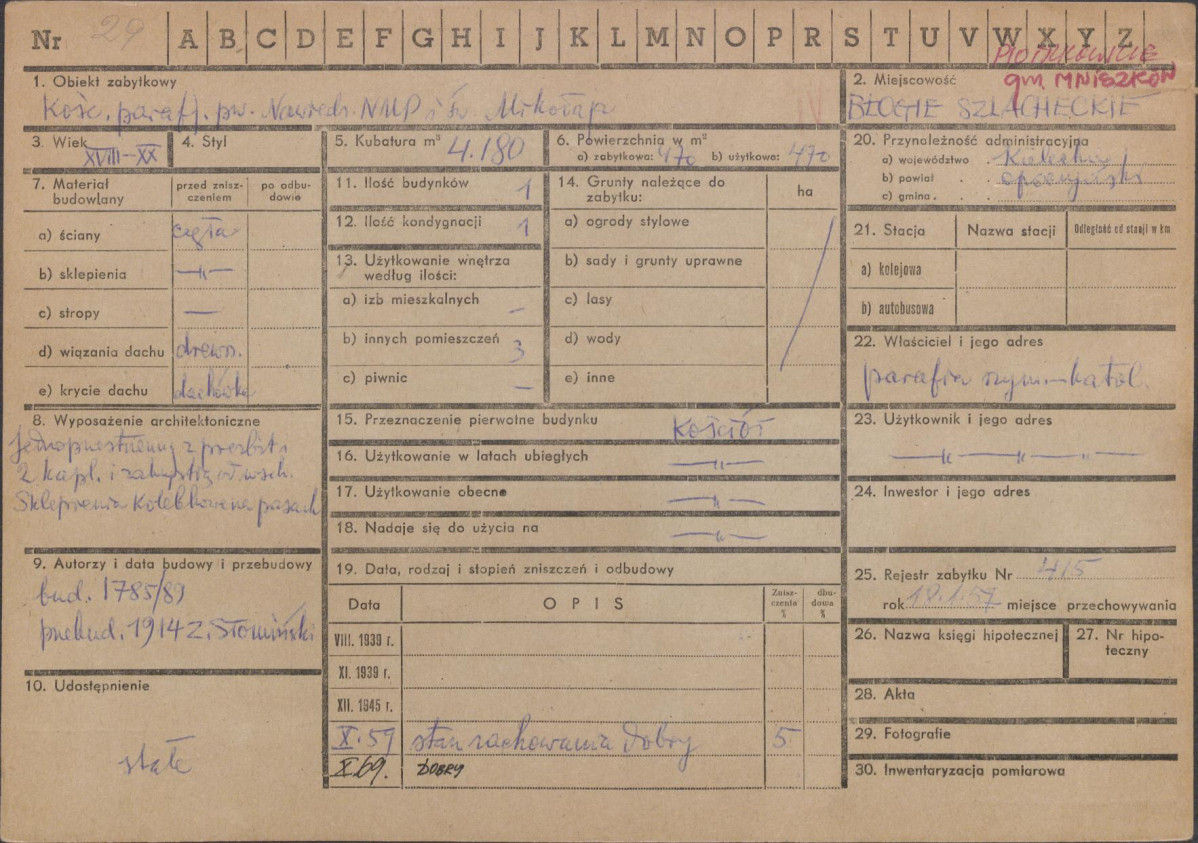 Nr 29 A B C D E F G H I J K L M N O P R S T U V W X Y Z
PIOTRKOWSKIE
gm. MNISZKÓW
1. Obiekt zabytkowy
Kośc. paraf. pw. Nawiedz. NMP i św. Mikołaja
IV
2. Miejscowość
BŁOGIE SZLACHECKIE
3. Wiek
XVIII-XX
4. Styl
5. Kubatura m³
4.180
6. Powierzchnia w m²
a) zabytkowa: 470 b) użytkowa: 470
7. Materiał budowlany
przed zniszczeniem
po odbudowie
a) ściany cegła
b) sklepienia —"—
c) stropy —
d) wiązania dachu drewn.
e) krycie dachu dachówka
8. Wyposażenie architektoniczne
Jednoprzestrzenny z prezbit. i
2 kapl. i zakrystią od wsch.
Sklepienia kolebkowe na pasach
9. Autorzy i data budowy i przebudowy
bud. 1785/89
przebud. 1914 Z. Słomiński
10. Udostępnienie
stałe
11. Ilość budynków 1
12. Ilość kondygnacji 1
13. Użytkowanie wnętrza
według ilości:
a) izb mieszkalnych –
b) innych pomieszczeń 3
c) piwnic –
14. Grunty należące do
zabytku:
ha
a) ogrody stylowe
b) sady i grunty uprawne
c) lasy
d) wody
e) inne
15. Przeznaczenie pierwotne budynku Kościół
16. Użytkowanie w latach ubiegłych —"—
17. Użytkowanie obecne —"—
18. Nadaje się do użycia na —"—
19. Data, rodzaj i stopień zniszczeń i odbudowy
Data OPIS Zniszczenia % dbudowa %
VIII. 1939 r.
XI. 1939 r.
XII. 1945 r.
X. 59 stan zachowania dobry 5
X. 69. DOBRY
20. Przynależność administracyjna
a) województwo Kieleckie
b) powiat . . opoczyński
c) gmina . . .
21. Stacja Nazwa stacji Odległość od stacji w km
a) kolejowa
b) autobusowa
22. Właściciel i jego adres
parafia rzym.-katol.
23. Użytkownik i jego adres
—"— —"— —
24. Inwestor i jego adres
25. Rejestr zabytku Nr 415
rok 18.1.57 miejsce przechowywania
26. Nazwa księgi hipotecznej
27. Nr hipoteczny
28. Akta
29. Fotografie
30. Inwentaryzacja pomiarowa